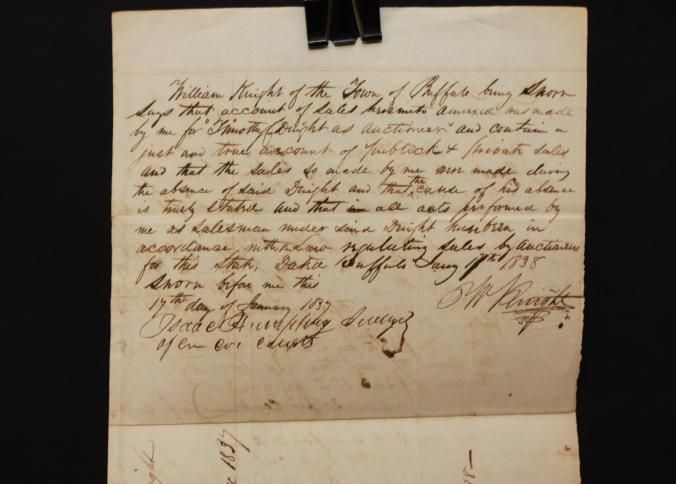 William Knight of the Town of Buffalo being Sworn
says that account of sales hereunto annexed was made
by me for Timothy Dwight as auctioneer and contain a
just and true account of publick & private sales
and that the sales so made by me were made during
the absence of said Dwight and that the cause of his absence
is truly stated and that in all acts performed by
me as salesman under said Dwight have been in
accordance with the Law regulating sales by auctioneers
for this State, Dated Buffalo Jany 17th 1838
Sworn before me this
17th day of January 1837
Isaac Humphrey
of Courts
Wm Knight
1837